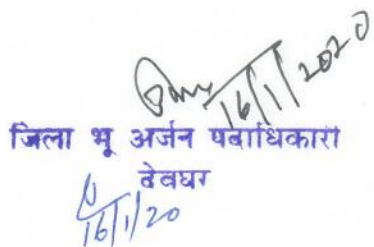 16/1/2020
जिला भू अर्जन पदाधिकारी
देवघर
16/1/20